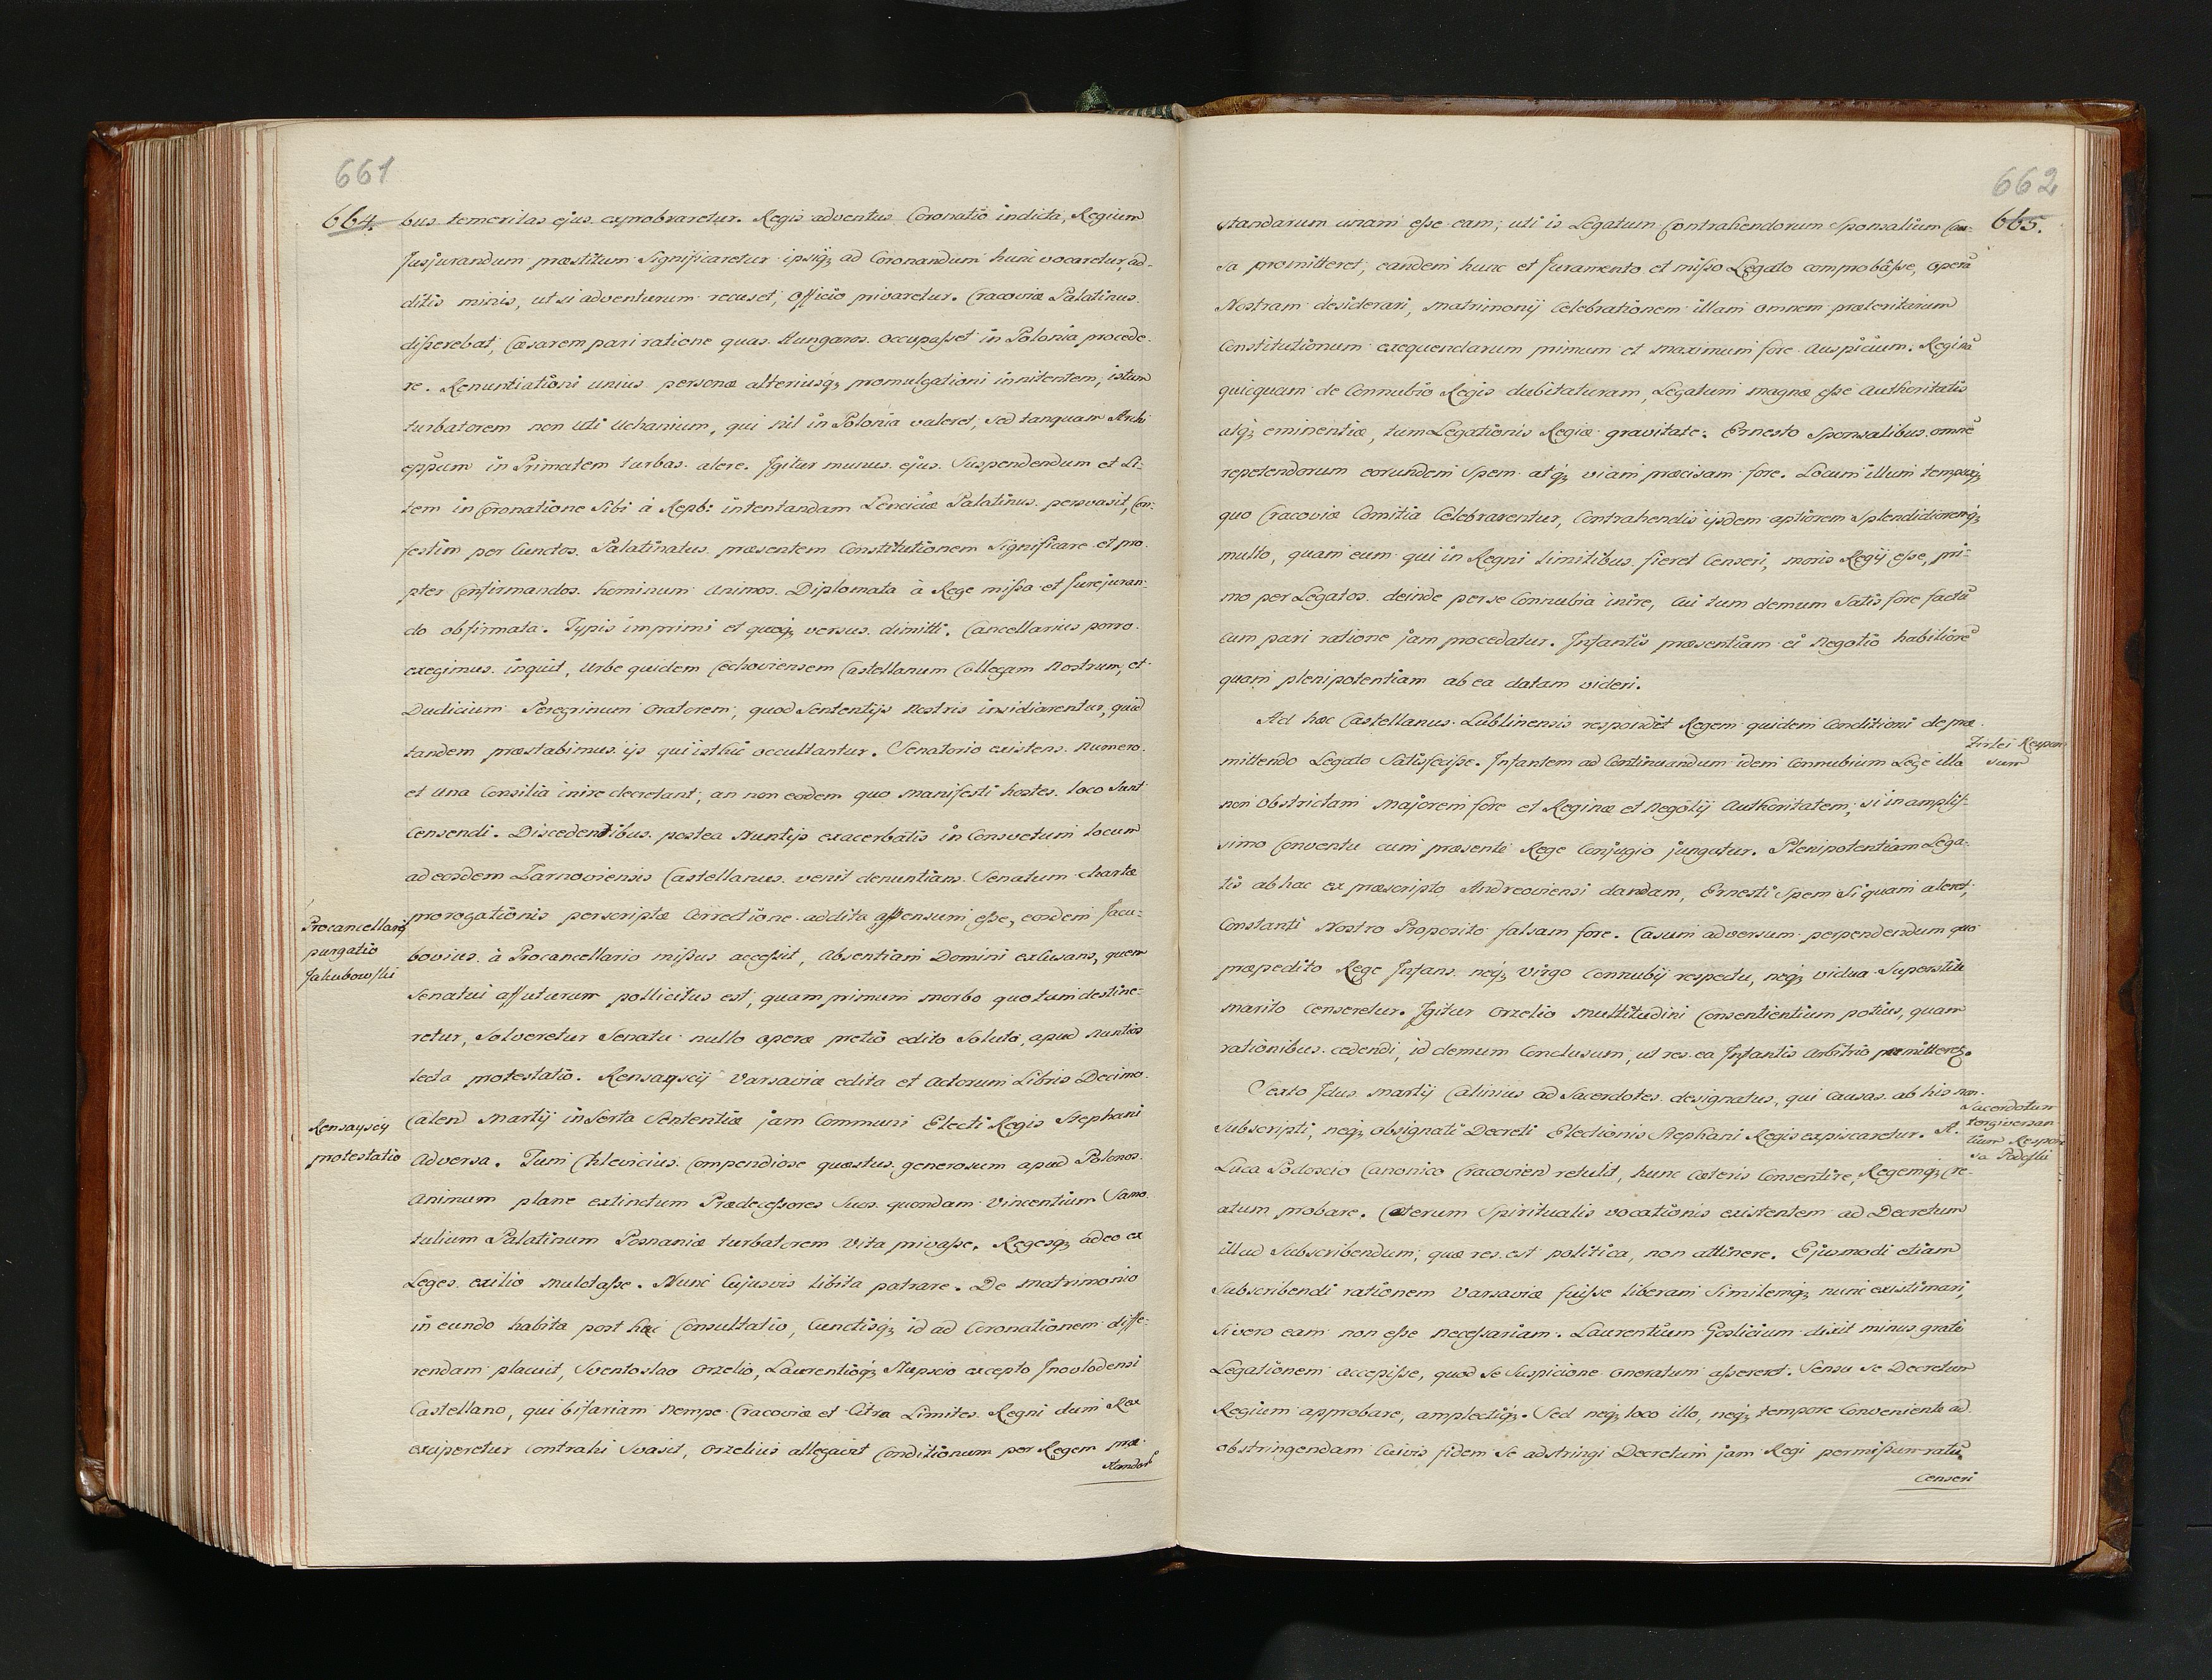 661
664.
bus temeritas ejus exprobraretur. Regis adventus Coronatio indicta, Regium
Jusjurandum præstitum Significaretur ipsiq; ad Coronandum hunc vocaretur, ad-
ditis minis, ut si adventurum recuset, Officio privaretur. Cracoviæ Palatinus
disserebat, Cæsarem pari ratione quas Hungaros occupasset in Polonia procede-
re. Renuntiationi unius personæ alteriusq; promulgationi innitentem, istum
turbatorem non uti Uchanium, qui nil in Polonia valeret, sed tanquam Archi
eppum in Primatem turbas alere. Igitur munus ejus Suspendendum et Li-
tem in Coronatione Sibi à Repb: intentandam Lenciciæ Palatinus persvasit, Con-
festim per Cunctos Palatinatus præsentem Constitutionem Significare et pro-
pter Confirmandos hominum animos Diplomata à Rege missa et Jurejuran-
do obfirmata. Typis imprimi et quoq; versus dimitti. Cancellarius porro
exegimus inquit, Urbe quidem Cechoviensem Castellanum Collegam Nostrum, et
Dudicium Peregrinum Oratorem, quod Sententijs Nostris insidiarentur, quid
tandem præstabimus ijs qui isthic occultantur. Senatorio existens Numero
et una Consilia inire decretant, an non eodem quo manifesti hostes loco Sunt
Censendi. Discedentibus postea Nuntijs exacerbatis in Consvetum locum
ad eosdem Tarnoviensis Castellanus venit denuntians Senatum chartæ
Procancellarij
purgatio
Jakubowski
prorogationis perscriptæ Correctione addita assensum esse, eodem Jacu-
bovius à Procancellario missus accessit, Absentiam Domini excusans, quem
Senatui affuturum pollicitus est, quam primum morbo quo tum destine-
retur, Solveretur Senatu nullo operæ pretio edito Soluto, apud Nuntios
lecta protestatio. Rensayscij Varsaviæ edita et Actorum Libris Decimo
Rensayscij
protestatio
Calend Martij inserta Sententiæ jam Communi Electi Regis Stephani
Adversa. Tum Chlevicius Compendiose quæstus, generosum apud Polonos
Animum plane extinctum Prædecessores Suos quondam Vincentium Samo-
tulium Palatinum Posnaniæ turbatorem Vita privasse. Regesq; adeo ex
Leges exilio mulctasse. Nunc Cujusvis libita patrare. De matrimonio
in eundo habita post hæc Consultatio, Cunctisq; id ad Coronationem diffe-
rendam placuit, Sventoslao Orzelio, Laurentioq; Stupscio excepto Inovlodensi
Castellano, qui bifariam Nempe Cracoviæ et Citra Limites Regni dum Rex
exciperetur contrahi Svasit, Orzelius allegavit Conditionum per Regem præ-
standar
662
665.
standarum unam esse eam; uti is Legatum Contrahendorum Sponsalium Cau-
sa promitteret, eandem hunc et Juramento et misso Legato comprobâsse, operã
Nostram desiderari, Matrimonij Celebrationem illam omnem præteritarum
Constitutionum exequendarum primum et maximum fore Auspicium. Reginã
quicquam de Connubio Regis dubitaturam, Legatum magnæ esse Authoritatis
atq; eminentiæ, tum Legationis Regiæ gravitate. Ernesto Sponsalibus omnẽ
repetendorum eorundem Spem atq; viam præcisam fore. Locum illum tempusq;
quo Cracoviæ Comitia Celebrarentur, Contrahendis ijsdem aptiorem Splendidioremq;
multo, quam eum qui in Regni Limitibus fieret Censeri, moris Regij esse, pri-
mo per Legatos deinde per se Connubia inire, Cui tum demum Satis fore factũ
cum pari ratione jam procedatur. Infantis præsentiam ei Negotio habiliorẽ
quam plenipotentiam ab ea datam videri.
Ad hæc Castellanus Lublinensis respondit Regem quidem Conditioni de præ-
Firlei Respon-
sum
mittendo Legato Satisfecisse. Infantem ad Continuandum idem Connubium Lege illa
non Obstrictam majorem fore et Reginæ et Negotij Authoritatem, si in amplis-
simo Conventu cum præsente Rege Conjugio jungatur. Plenipotentiam Lega-
tis ab hac ex præscripto Andreoviensi dandam, Ernesti Spem Si quam aleret,
Constanti Nostro Proposito falsam fore. Casum adversum perpendendum quo
præpedito Rege Infans neq; virgo Connubij respectu, neq; vidua Superstite
marito Censeretur. Igitur Orzelio multitudini Consentientium potius, quam
rationibus cedendi, id demum Conclusum, ut res ea Infantis Arbitrio permitteret.
Sexto Idus Martij Calinius ad Sacerdotes designatus, qui Causas ab his non
Sacerdotum
tergiversan-
tium Respon
sa Podoski
Subscripti, neq; Obsignati Decreti Electionis Stephani Regis expiscaretur. A
Luca Podoscio Canonico Cracovien retulit, hunc Cæteris Consentire, Regemq; Cre-
atum probare. Cæterum Spiritualis vocationis existentem ad Decretum
illud Subscribendum, quæ res est politica, non attinere. Ejusmodi etiam
Subscribendi rationem Varsaviæ fuisse liberam Similemq; nunc existimari,
Si vero eam non esse Necessariam. Laurentium Goslicium dixit minus grate
Legationem accepisse, quod se Suspicione oneratum assereret. Sensu se Decretum
Regium approbare, amplectiq;. Sed neq; loco illo, neq; tempore Conveniente ad
obstringendam Cuivis fidem Se adstringi Decretum jam Regi permissum ratũ
Censeri